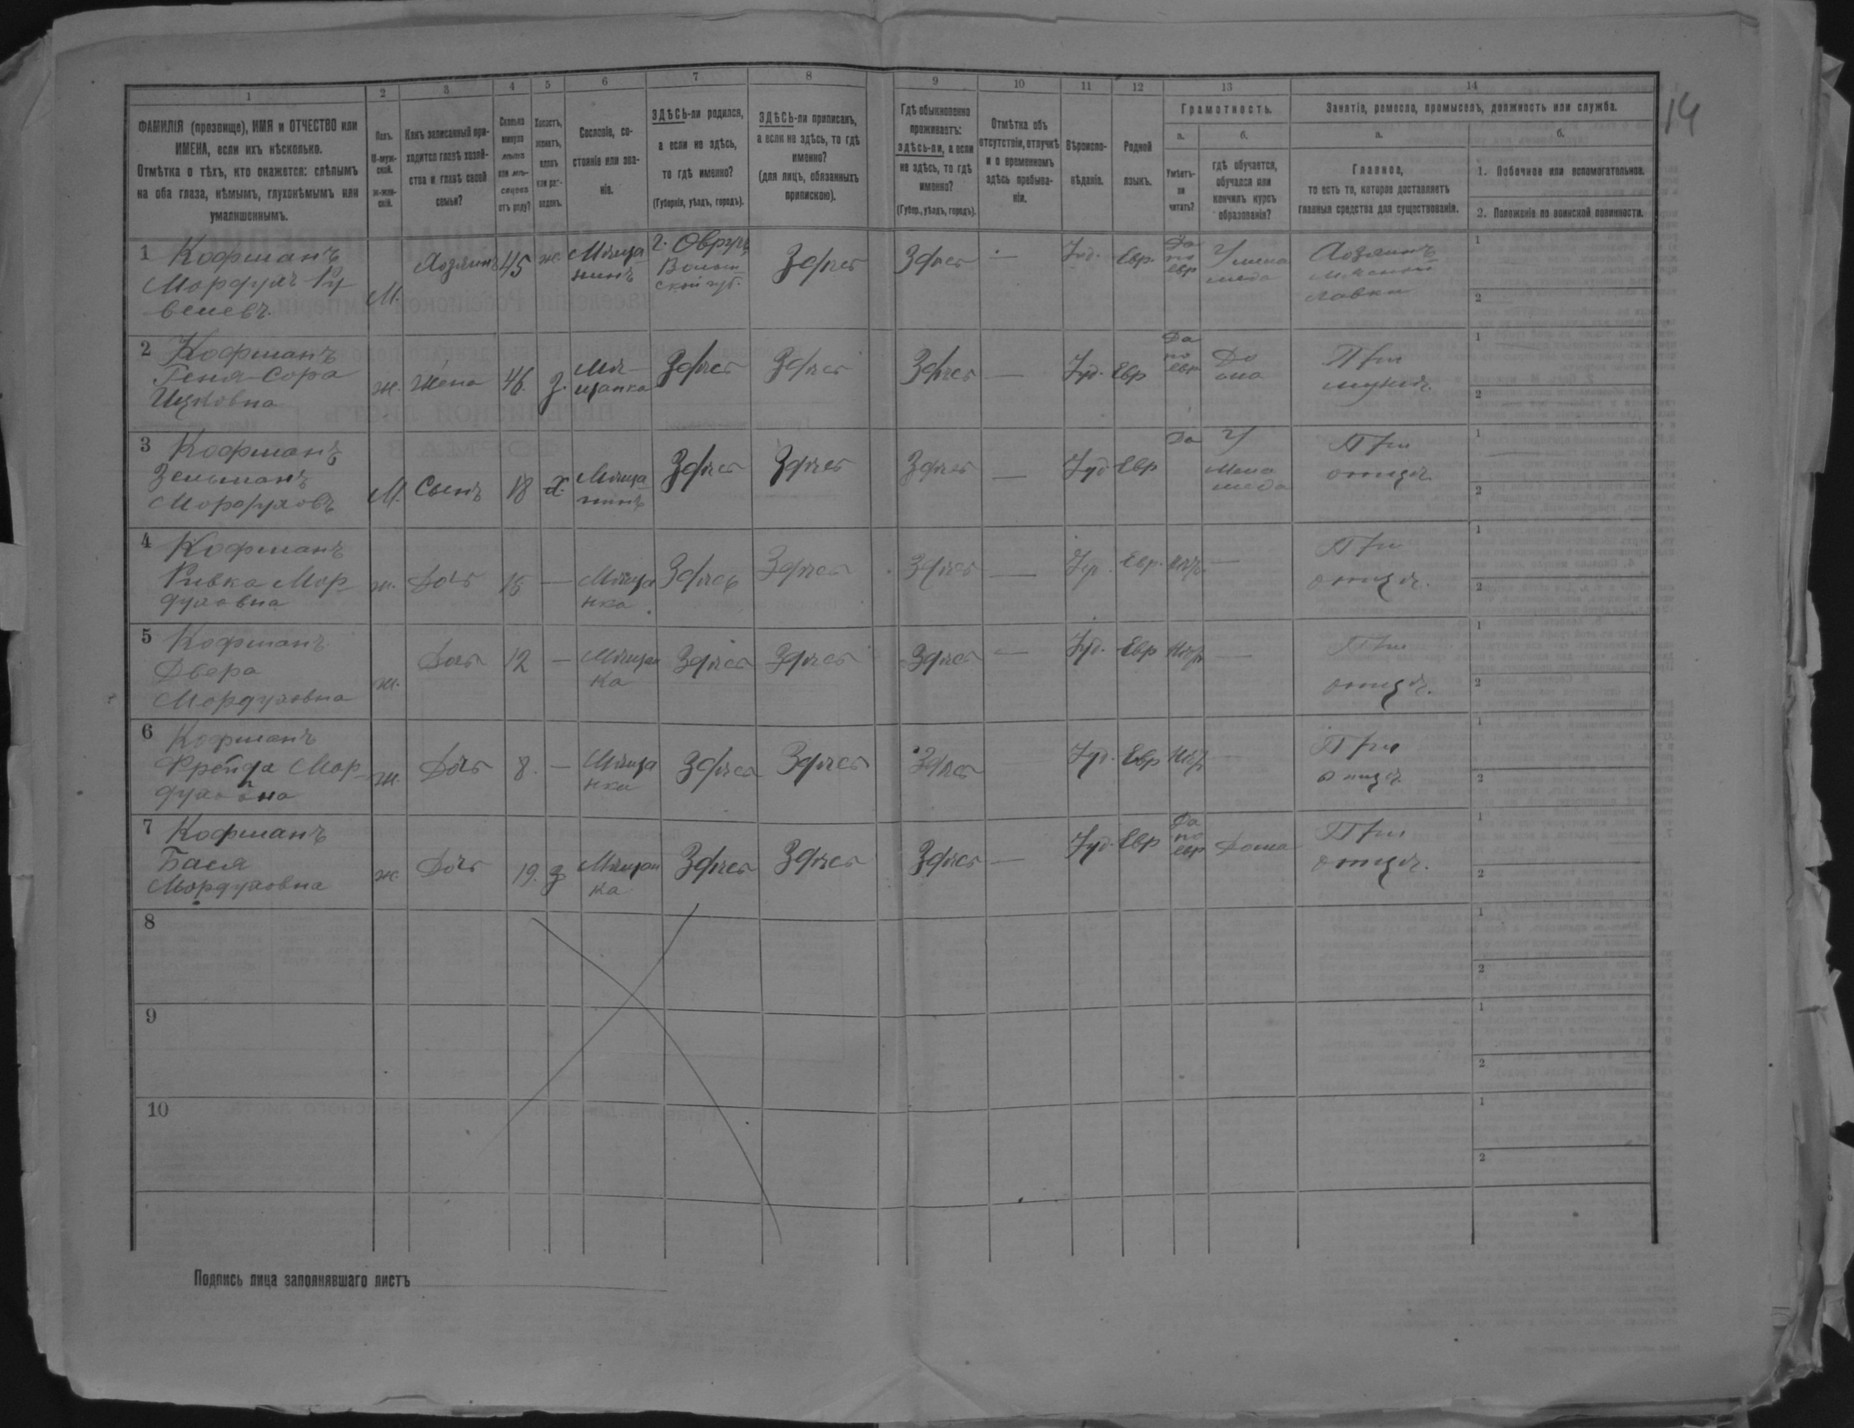 14
1 2 3 4 5 6 7 8 9 10 11 12 13 14
ФАМИЛІЯ (прозвище), ИМЯ и ОТЧЕСТВО или
ИМЕНА, если ихъ нѣсколько.
Отмѣтка о тѣхъ, кто окажется: слѣпымъ
на оба глаза, нѣмымъ, глухонѣмымъ или
умалишоннымъ.
Полъ.
М-муж-
ской.
Ж-жен-
скій.
Какъ записанный при-
ходится главѣ хозяй-
ства и главѣ своей
семьи?
Сколько
минуло
лѣтъ
или мѣ-
сяцевъ
отъ роду?
Холостъ,
женатъ,
вдовъ
или раз-
веденъ.
Сословіе, со-
стояніе или зва-
ніе.
ЗДѢСЬ-ли родился,
а если не здѣсь,
то гдѣ именно?
(Губернія, уѣздъ, городъ).
ЗДѢСЬ-ли приписанъ,
а если не здѣсь, то гдѣ
именно?
(для лицъ, обязанныхъ
припискою).
Гдѣ обыкновенно
проживаетъ:
здѣсь-ли, а если
не здѣсь, то гдѣ
именно?
(Губер., уѣздъ, городъ).
Отмѣтка объ
отсутствіи, отлучкѣ
и о временномъ
здѣсь пребыва-
ніи.
Вѣроиспо-
вѣданіе.
Родной
языкъ.
Грамотность.
а.
Умѣетъ-
ли
читать?
б.
гдѣ обучается,
обучался или
кончилъ курсъ
образованія?
Занятіе, ремесло, промыселъ, должность или служба.
а.
Главное,
то есть то, которое доставляетъ
главныя средства для существованія.
б.
1. Побочное или вспомогательное.
2. Положеніе по воинской повинности.
1 Кофманъ
Мордухъ Ру
венев.
М. Хозяинъ 45 ж. Мѣща
нинъ
г. Овручъ
Волын
ской губ.
Здѣсь Здѣсь — Іуд. Евр.
Да
по
евр
У мела
меда
Хозяинъ
лавки
1
2
2 Кофманъ
Геня-Сора
Ицковна
ж. Жена 46 з. Мѣ-
щанка
Здѣсь Здѣсь Здѣсь — Іуд. Евр
Да
по
евр
До
ма
При
мужѣ.
1
2
3 Кофманъ
Зельманъ
Мордуховъ
М. Сынъ 18 х. Мѣща
нинъ
Здѣсь Здѣсь Здѣсь — Іуд Евр Да
У
мела
меда
При
отцѣ.
1
2
4 Кофманъ
Ривка Мор
духовна
ж. Дочь 15 — Мѣща
нка
Здѣсь Здѣсь Здѣсь — Іуд. Евр. Нѣт —
При
отцѣ.
1
2
5 Кофманъ
Двера
Мордуховна
ж. Дочь 12 — Мѣщан
ка
Здѣсь Здѣсь Здѣсь — Іуд. Евр Нѣт —
При
отцѣ.
1
2
6 Кофманъ
Фрейда Мор
духовна
ж. Дочь 8. — Мѣща
нка
Здѣсь Здѣсь Здѣсь Іуд. Евр Нѣт —
При
отцѣ
1
2
7 Кофманъ
Бася
Мордуховна
ж Дочь 19. з Мѣщан
ка
Здѣсь Здѣсь Здѣсь — Іуд. Евр
Да
по
евр
Дома
При
отцѣ.
1
2
8
1
2
9
1
2
10
1
2
Подпись лица заполнявшаго листъ